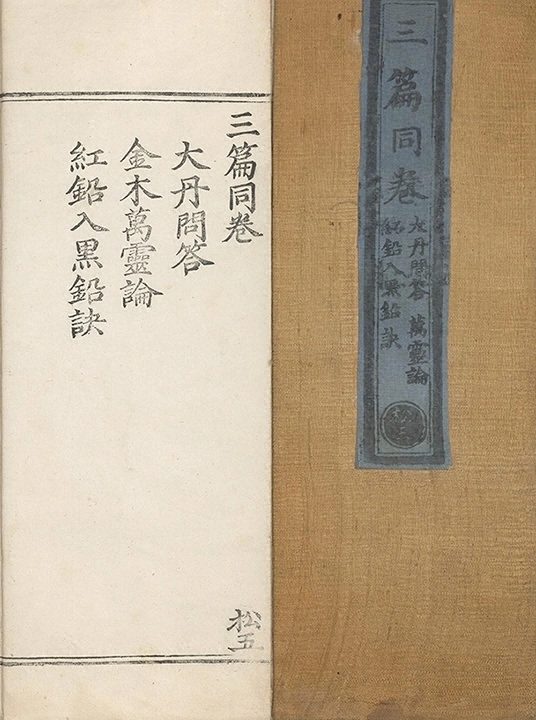 三篇同卷
大丹問答 萬靈論
紅鉛入黑鉛訣
松五
三篇同卷
大丹問答
金木萬靈論
紅鉛入黑鉛訣
松五